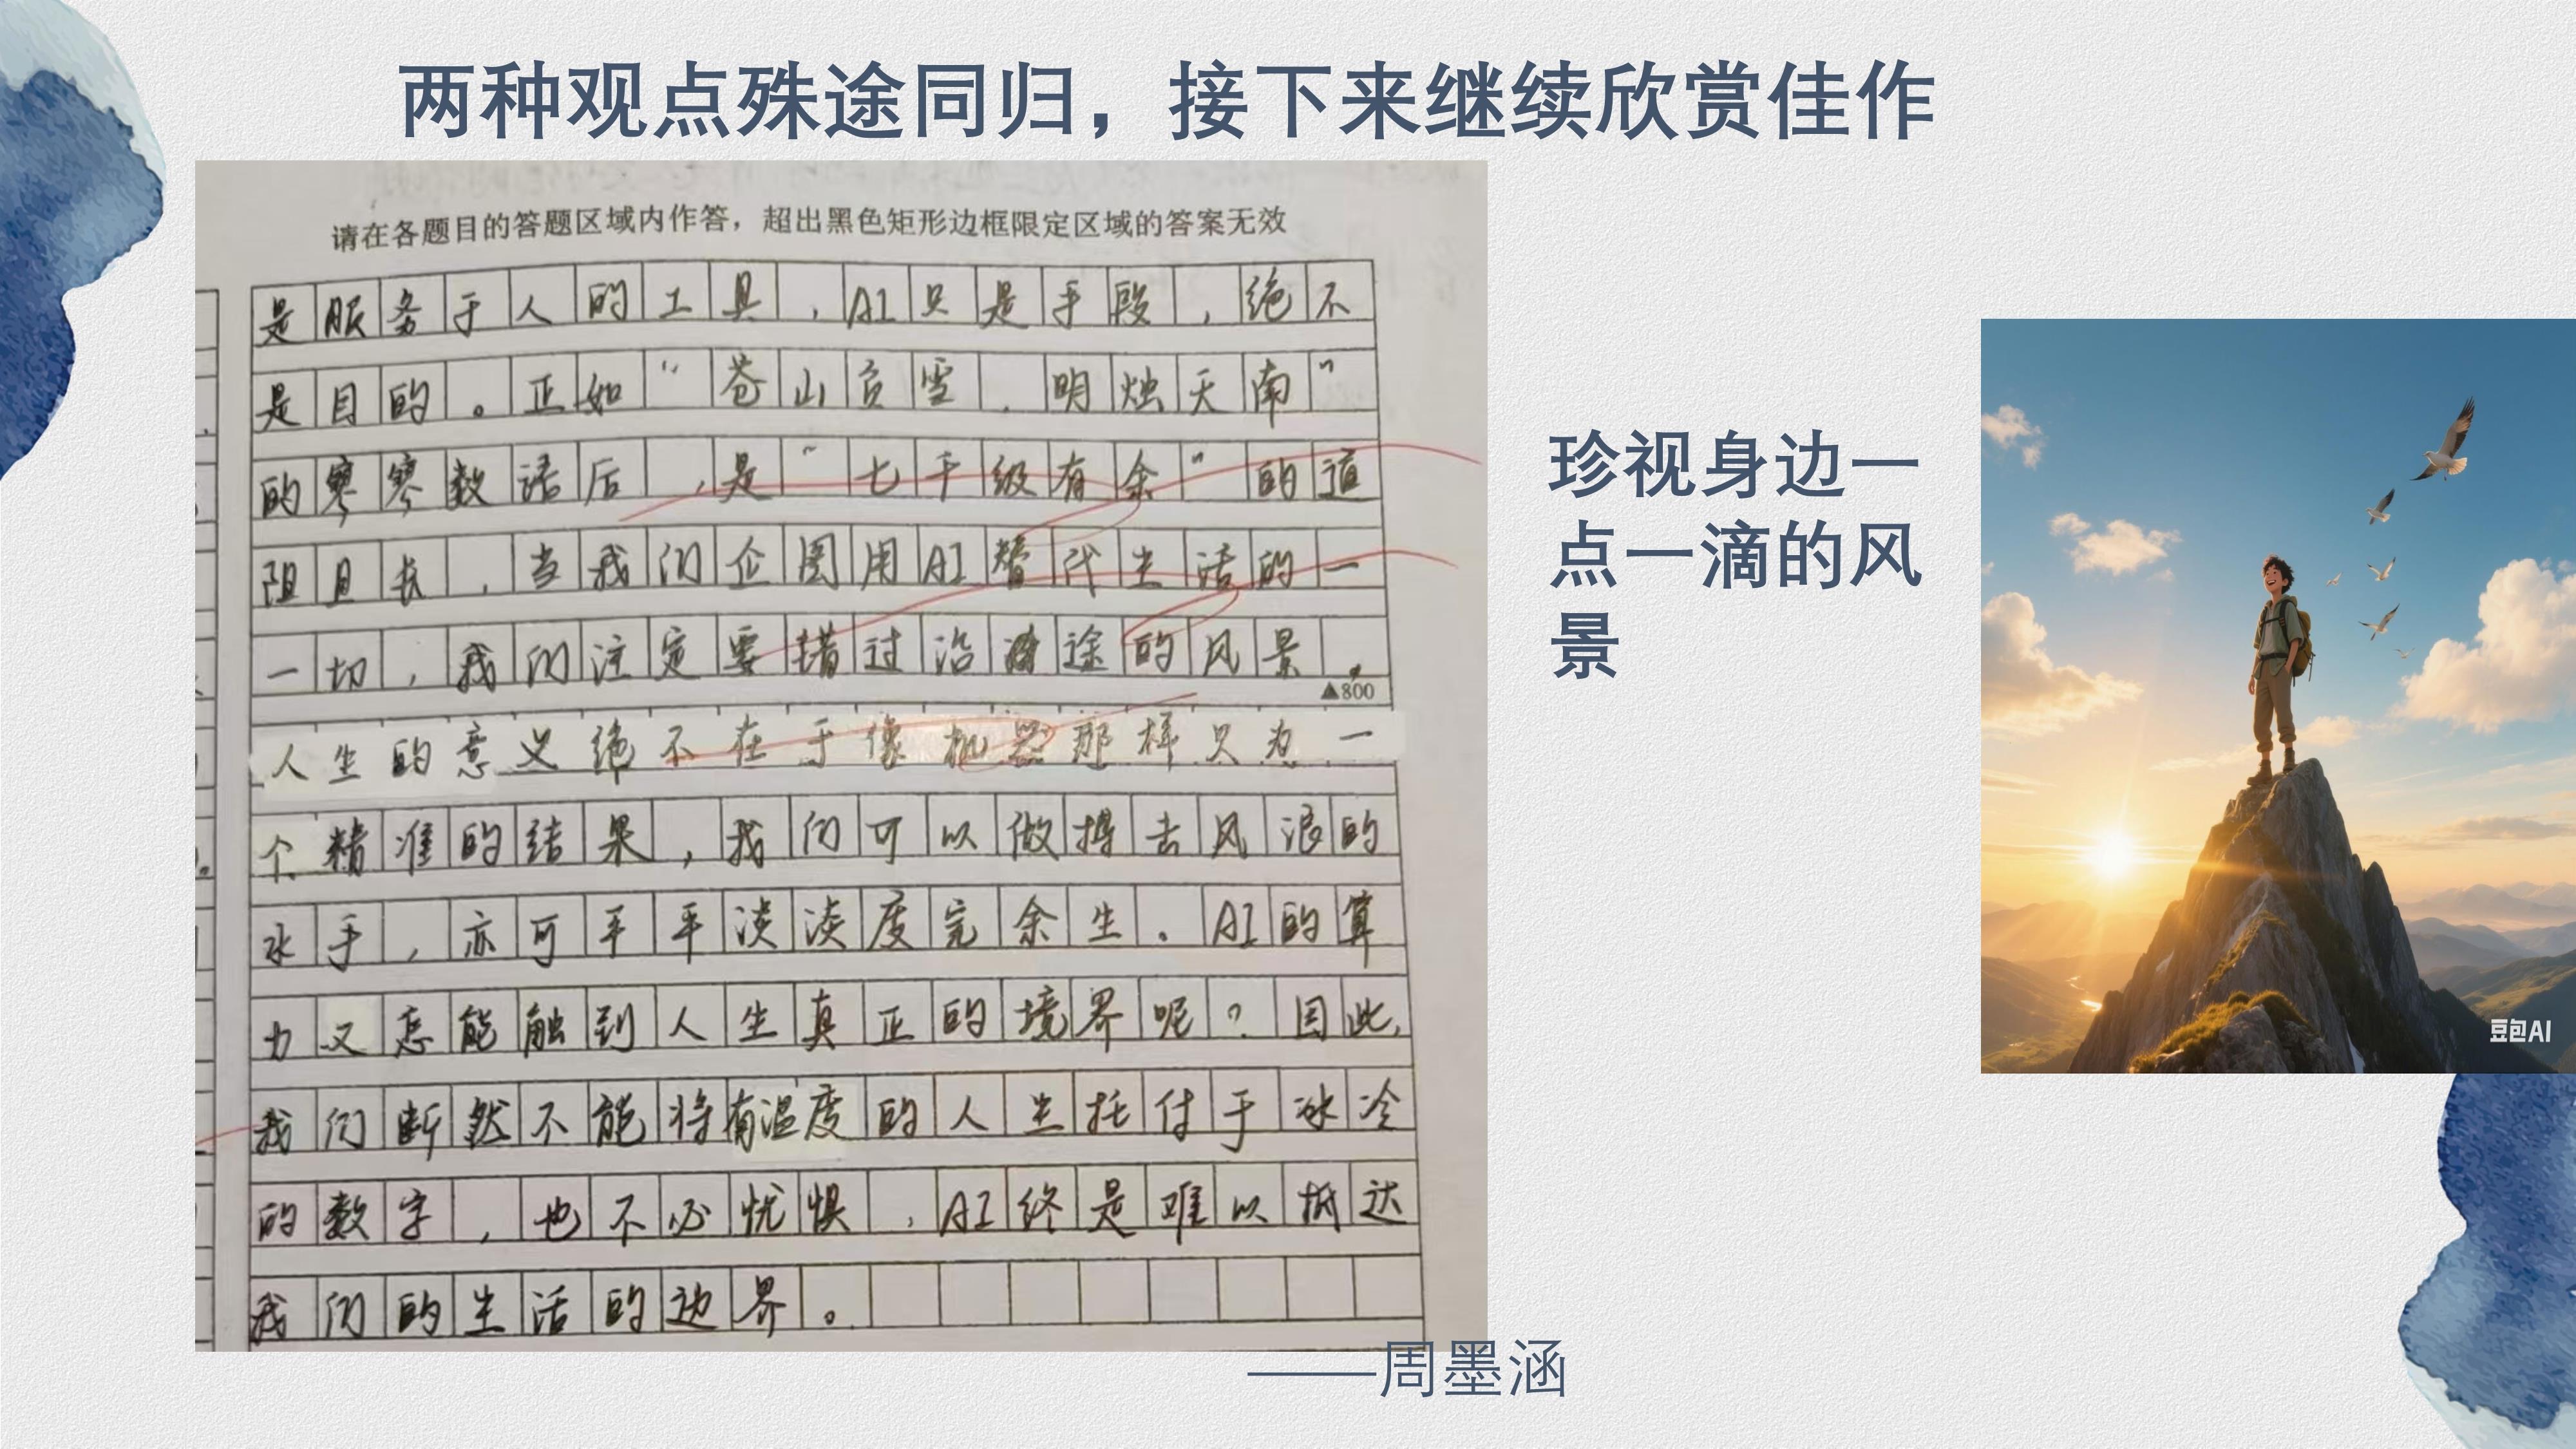 两种观点殊途同归，接下来继续欣赏佳作
请在各题目的答题区域内作答，超出黑色矩形边框限定区域的答案无效
是服务于人的工具，AI只是手段，绝不
是目的。正如“苍山负雪，明烛天南”
的寥寥数语后，是“七千级有余”的道
阻且长，当我们企图用AI替代生活的一
一切，我们注定要错过沿途的风景。
▲800
人生的意义绝不在于像机器那样只为一
个精准的结果，我们可以做搏击风浪的
水手，亦可平平淡淡度完余生。AI的算
力又怎能触到人生真正的境界呢？因此，
我们断然不能将有温度的人生托付于冰冷
的数字，也不必忧惧，AI终是难以抵达
我们的生活的边界。
珍视身边一
点一滴的风
景
豆包AI
——周墨涵